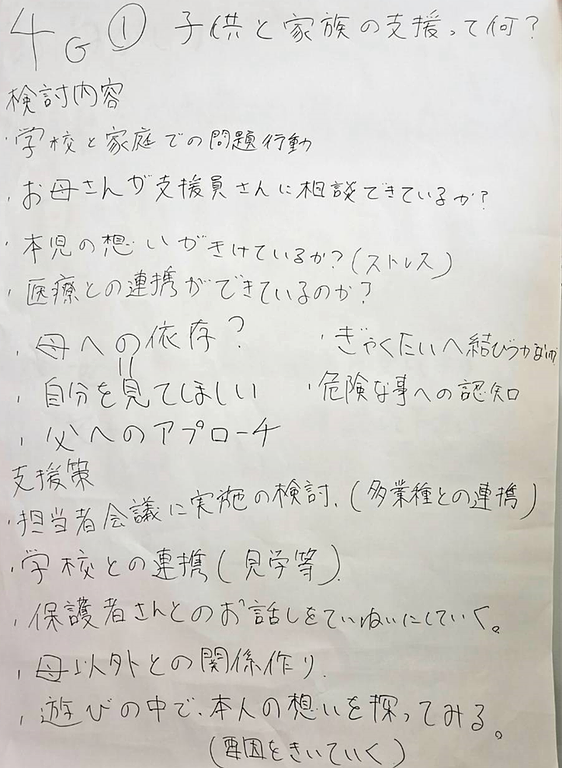 4G ① 子供と家族の支援って何?
検討内容
・学校と家庭での問題行動
・お母さんが支援員さんに相談できているか?
・本児の想いがきけているか?(ストレス)
・医療との連携ができているのか?
・母への依存?
・ぎゃくたいへ結びつかないか
||
・自分を見てほしい
・危険な事への認知
・父へのアプローチ
支援策
・担当者会議に実施の検討、(多業種との連携)
・学校との連携(見学等)
・保護者さんとのお話しをていねいにしていく。
・母以外との関係作り
・遊びの中で、本人の想いを探ってみる。
(要因をきいていく)